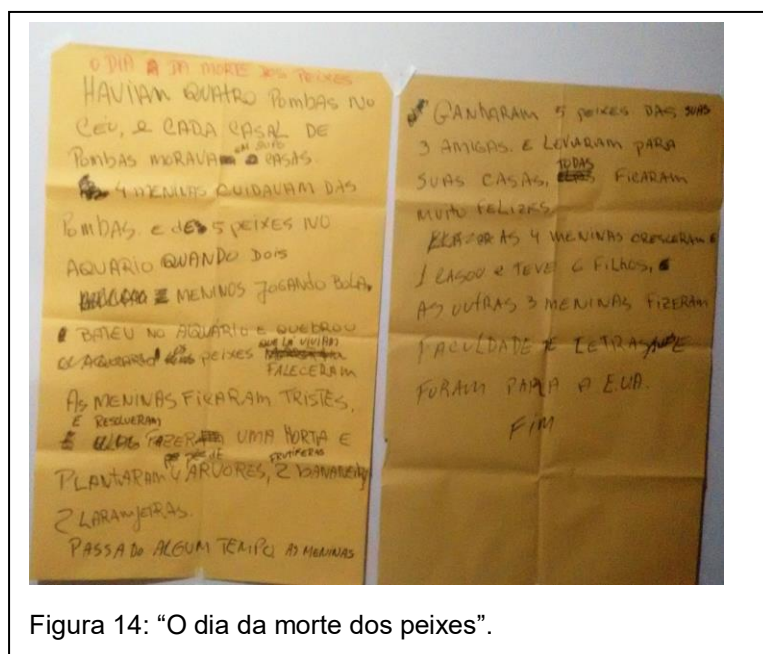 O DIA DA MORTE DOS PEIXES
HAVIAM QUATRO POMBAS NO
CEU, E CADA CASAL DE
POMBAS MORAVA EM SUAS CASAS.
4 MENINAS CUIDAVAM DAS
POMBAS. E DE 5 PEIXES NO
AQUARIO QUANDO DOIS
MENINOS JOGANDO BOLA.
BATEU NO AQUARIO E QUEBROU
PEIXES QUE LÁ VIVIAM
FALECERAM
AS MENINAS FICARAM TRISTES,
E RESOLVERAM
FAZER UMA HORTA E
PLANTARAM 4 PÉS DE ARVORES FRUTÍFERAS, 2 BANANEIRAS
2 LARANJEIRAS.
PASSADO ALGUM TEMPO AS MENINAS
GANHARAM 5 PEIXES DAS SUAS
3 AMIGAS. E LEVARAM PARA
SUAS CASAS, TODAS FICARAM
MUITO FELIZES
AS 4 MENINAS CRESCERAM
1 CASOU E TEVE 6 FILHOS,
AS OUTRAS 3 MENINAS FIZERAM
FACULDADE DE LETRAS E
FORAM PARA A EUA.
FIM
Figura 14: “O dia da morte dos peixes”.